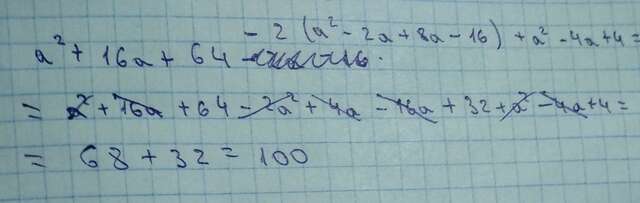 a² + 16a + 64 - 2 (a² - 2a + 8a - 16) + a² - 4a + 4 =
= a² + 16a + 64 - 2a² + 4a - 16a + 32 + a² - 4a + 4 =
= 68 + 32 = 100